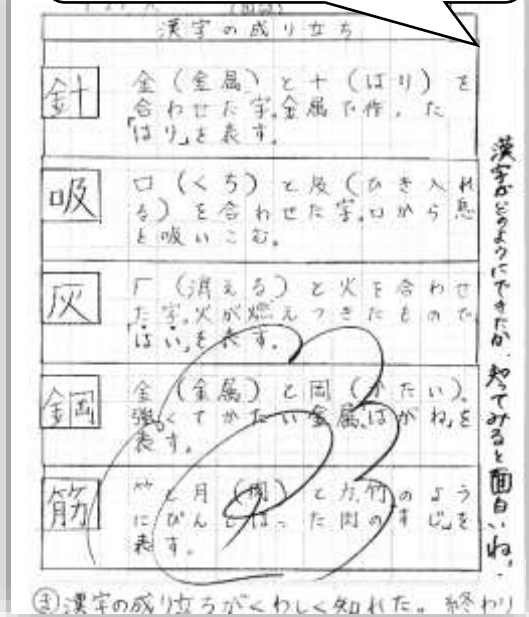 漢字の成り立ち
針
金(金属)と十(はり)を
合わせた字。金属で作った
「はり」を表す。
吸
口(くち)と及(ひき入れ
る)を合わせた字。口から息
を吸いこむ。
灰
厂(消える)と火を合わせ
た字。火が燃えつきたもので
「はい」を表す。
鋼
金(金属)と岡(かたい)。
強くてかたい金属「はがね」を
表す。
筋
竹と月(肉)と力。竹のよう
にぴんとはった肉の「すじ」を
表す。
漢字がどのようにできたか、知ってみると面白いね。
ま漢字の成り立ちがくわしく知れた。終わり